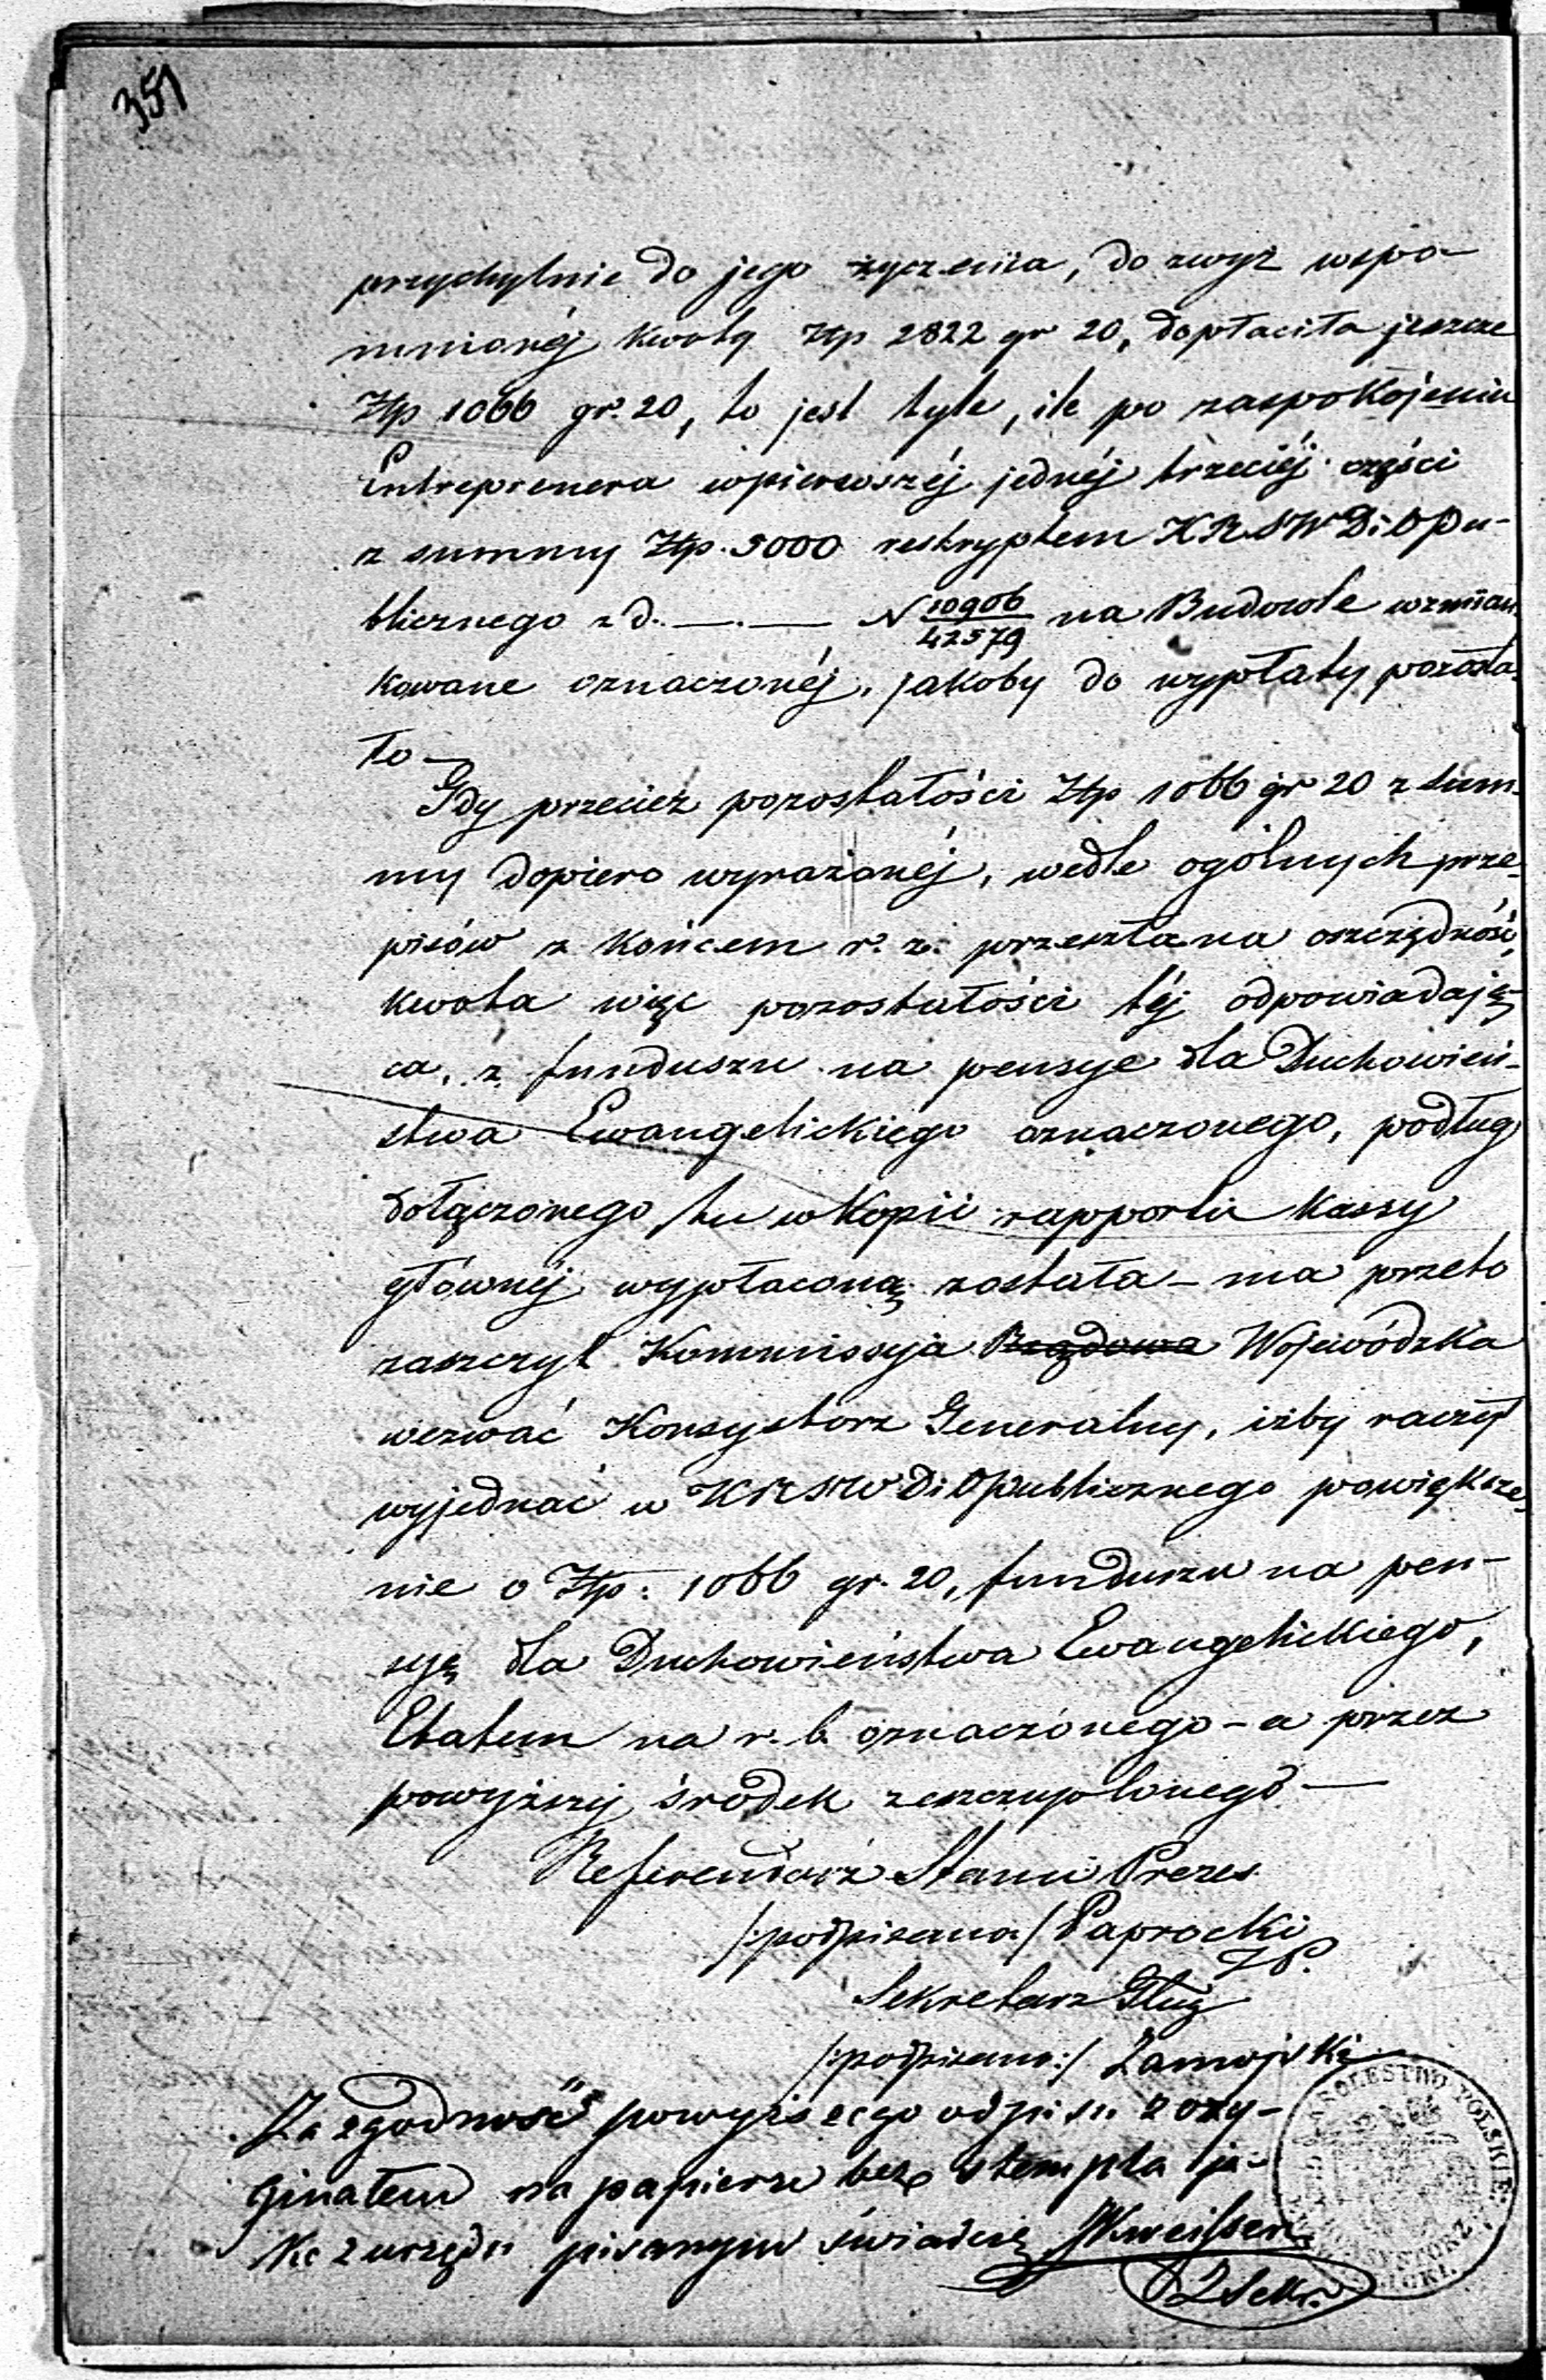 351
przychylnie do jego życzenia, do zwyż wspo-
mnionéj kwoty Złp 2822 gr 20, dopłaciła jeszcze
Złp 1066 gr. 20, to jest tyle, ile po zaspokojeniu
Entreprenera w pierwszéj jednéj trzeciéj części
z summy Złp. 5000 reskryptem KRSWDiOPu-
blicznego z d. —.— N 10906/42579 na Budowle wzmian
kowane oznaczonéj, jakoby do wypłaty pozosta
ło —
Gdy przecież pozostałości Złp 1066 gr 20 z sum-
my dopiero wyrażonéj, wedle ogólnych prze-
pisów z końcem r. z. przeszła na oszczędność,
kwota więc pozostałości téj odpowiadają-
ca, z funduszu na pensye dla Duchowień-
stwa Ewangelickiego oznaczonego, podług
dołączonego tu w kopii rapportu Kassy
głównéj wypłaconą została – ma przeto
zaszczyt Kommissya Rządowa Wojewódzka
wezwać Konsystorz Generalny, iżby raczył
wyjednać w KRSWDiOPublicznego powiększe-
nie o Złp: 1066 gr. 20, funduszu na pen-
syą dla Duchowieństwa Ewangelickiego,
Etatem na r. b. oznaczonego – a przez
powyższy środek zeszczuplonego —
Referendarz Stanu Prezes
/:podpisano/ Paprocki
ZP.
Sekretarz Jłny
/:podpisano:/ Zamojski
Za zgodność powyższego odpisu z ory-
ginałem na papierze bez stempla ja-
ko z urzędu pisanym świadczę
Sekr.
KROLESTWO POLSKIE
KONSYSTORZ